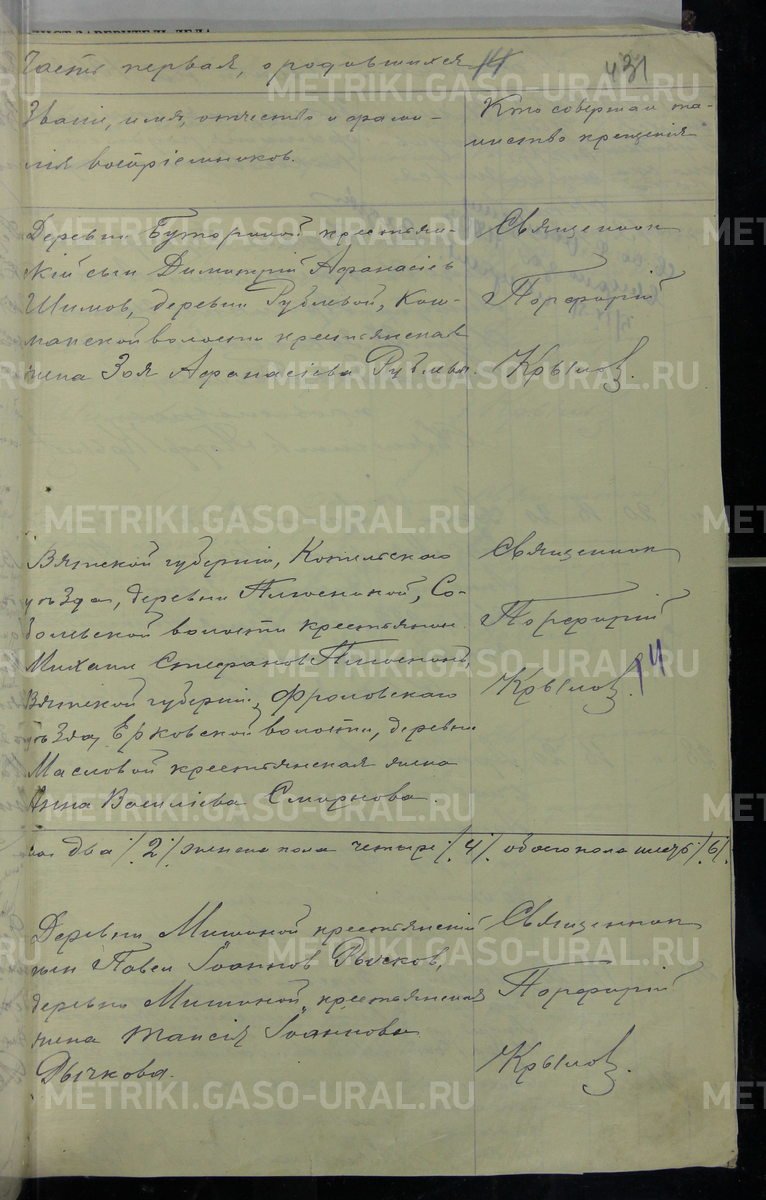 Часть первая, о родившихся 14
431
Званіе, имя, отчество и фами-
лія воспріемниковъ.
Кто совершал та-
инство крещенія
Деревни Буториной крестьян-
скій сын Димитрій Афанасіев
Шимов, деревни Рублевой, Кош-
манской волости крестьянская
жена Зоя Афанасіева Рублева.
Священник
Порфирій
Крылов.
Вятской губерніи, Котельскаго
уѣзда, деревни Плюсниной, Со-
больской волости крестьянин
Михаил Стефанов Плюснин,
Вятской губерніи, Фроловскаго
уѣзда, Ерковской волости, деревни
Масловой крестьянская жена
Анна Василіева Смирнова.
Священник
Порфирій
Крылов. 14
два /2/ женска пола четыре /4/ обоего пола шесть /6/
Деревни Мишиной крестьянскій
сын Павел Іоаннов Рычков,
деревни Мишиной крестьянская
жена Таисія Іоаннова
Рычкова.
Священник
Порфирій
Крылов.
METRIKI.GASO-URAL.RU